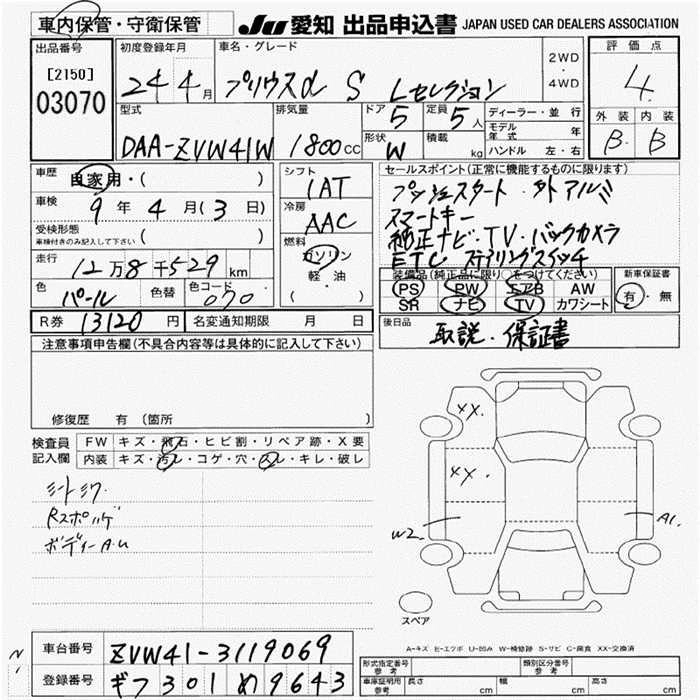 車内保管・守衛保管
JU 愛知 出品申込書 JAPAN USED CAR DEALERS ASSOCIATION
出品番号 初度登録年月 車名・グレード 2WD・4WD 評価点
[2150] 03070
24 4月 プリウスα S Lセレクション 4
型式 排気量 ドア 5 定員 5人 ディーラー・並行 外装 内装
DAA-ZVW41W 1800cc 形状 W 積載 kg モデル年式 年 B B
ハンドル 左・右
車歴 自家用・( )
シフト 1AT
車検 9年 4月(3日)
冷房 AAC
受検形態 ( )
車検付きのみ記入して下さい
燃料 ガソリン 軽・油 ( )
走行 12万8千529km
色 パール 色替 色コード 070
R券 13120円 名変通知期限 月 日
セールスポイント(正常に機能するものに限ります)
プッシュスタート・外アルミ
スマートキー
純正ナビ・TV・バックカメラ
ETC ステアリングスイッチ
装備品(純正品に限り○をつけてください) 新車保証書
PS PW エアB AW 有・無
SR ナビ TV カワシート
後日品 取説・保証書
注意事項申告欄(不具合内容等は具体的に記入して下さい)
修復歴 有 (箇所 )
検査員記入欄 FW キズ・飛石・ヒビ割・リペア跡・X要
内装 キズ・汚レ・コゲ・穴・スレ・キレ・破レ
シートシワ
Rスポッゲ
ボディーA.U
XX.
XX.
W2
A1.
スペア
A-キズ E-エクボ U-凹み W-補修跡 S-サビ C-腐食 XX-交換済
車台番号 ZVW41-3119069
登録番号 ギフ301め9643
形式指定番号 参考 類別区分番号 参考
車庫証明用 参考 長さ cm 幅 cm 高さ cm